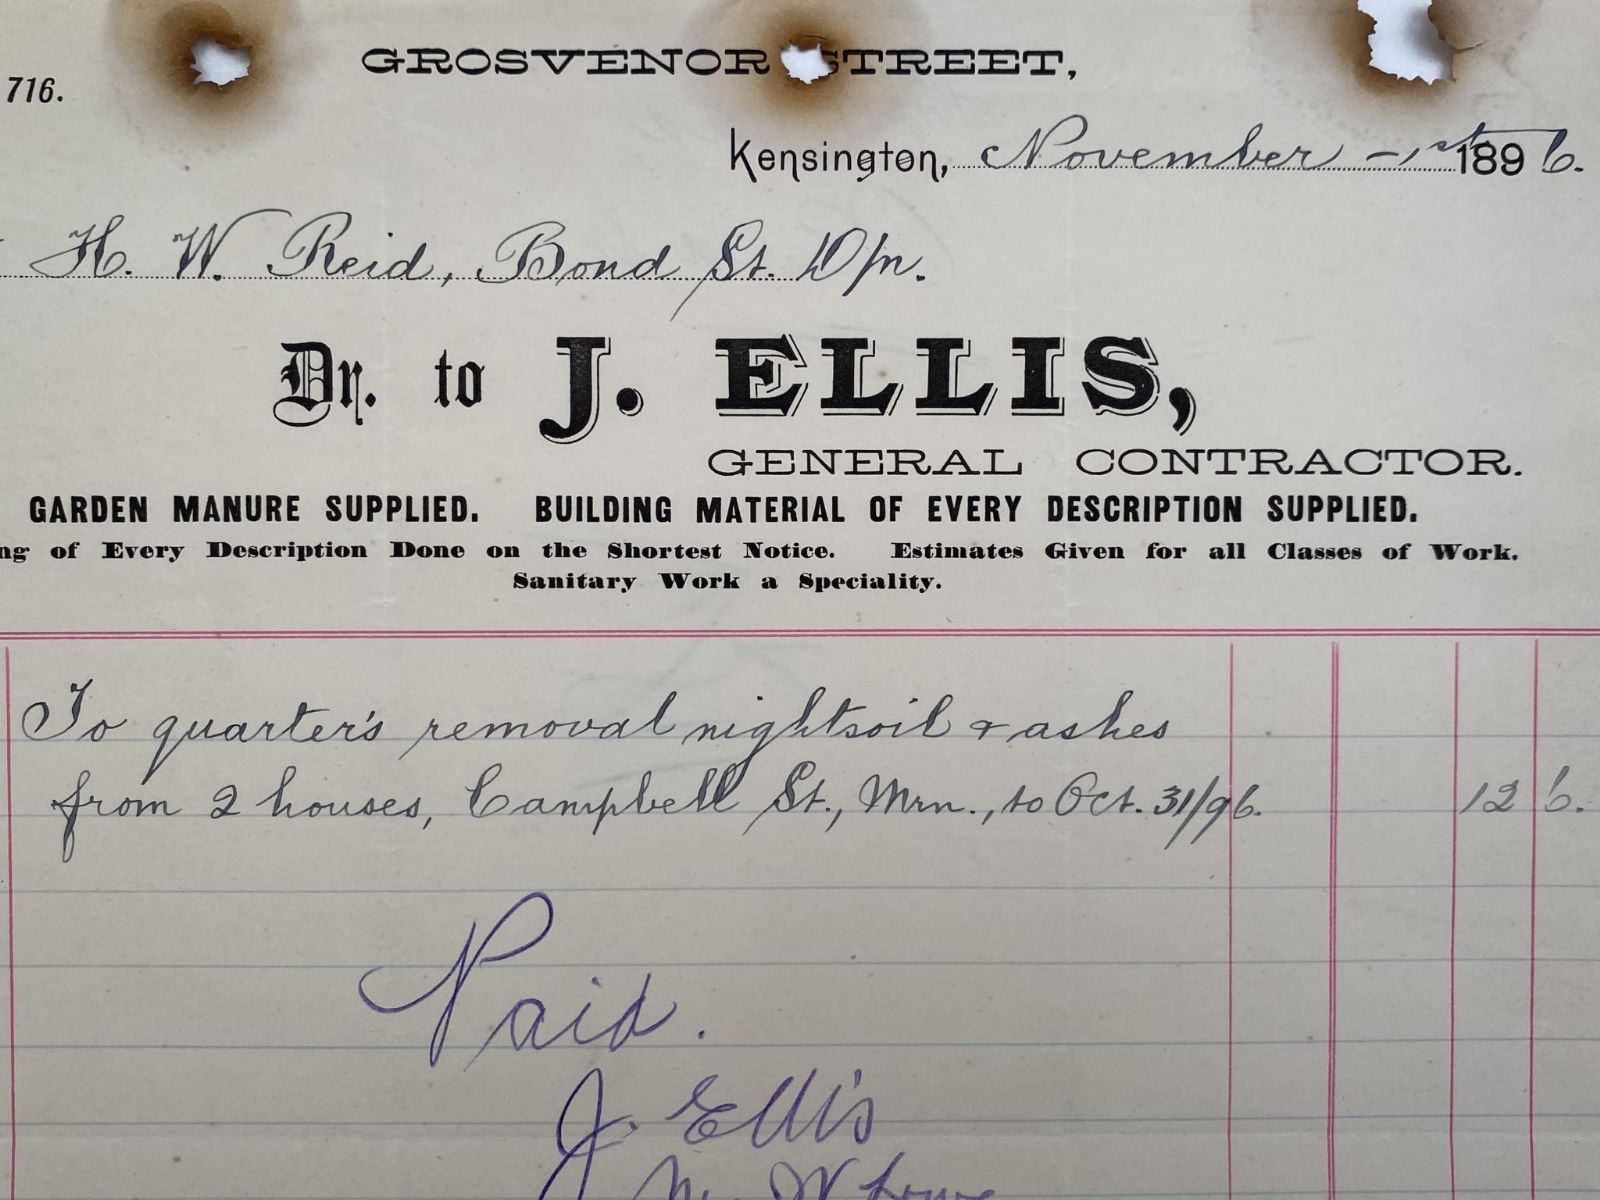 GROSVENOR STREET,
716.
Kensington, November 1st 1896.
H. W. Reid, Bond St. D/n.
Dr. to J. ELLIS,
GENERAL CONTRACTOR.
GARDEN MANURE SUPPLIED. BUILDING MATERIAL OF EVERY DESCRIPTION SUPPLIED.
ng of Every Description Done on the Shortest Notice. Estimates Given for all Classes of Work.
Sanitary Work a Speciality.
To quarter's removal nightsoil & ashes
from 2 houses, Campbell St., Mrn., to Oct. 31/96. 12 6.
Paid.
J. Ellis